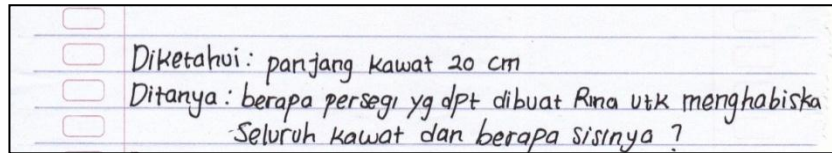 Diketahui : panjang kawat 20 cm
Ditanya : berapa persegi yg dpt dibuat Rina utk menghabiska
Seluruh kawat dan berapa sisinya ?